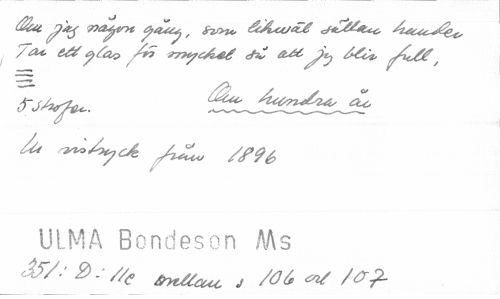 Om jag någon gång, som likwäl sällan hender
Tar ett glas för mycket så att jg blir full,
5 strofer. Om hundra år
Ur vistryck från 1896
ULMA Bondeson Ms
351: D: 11c mellan s 106 och 107